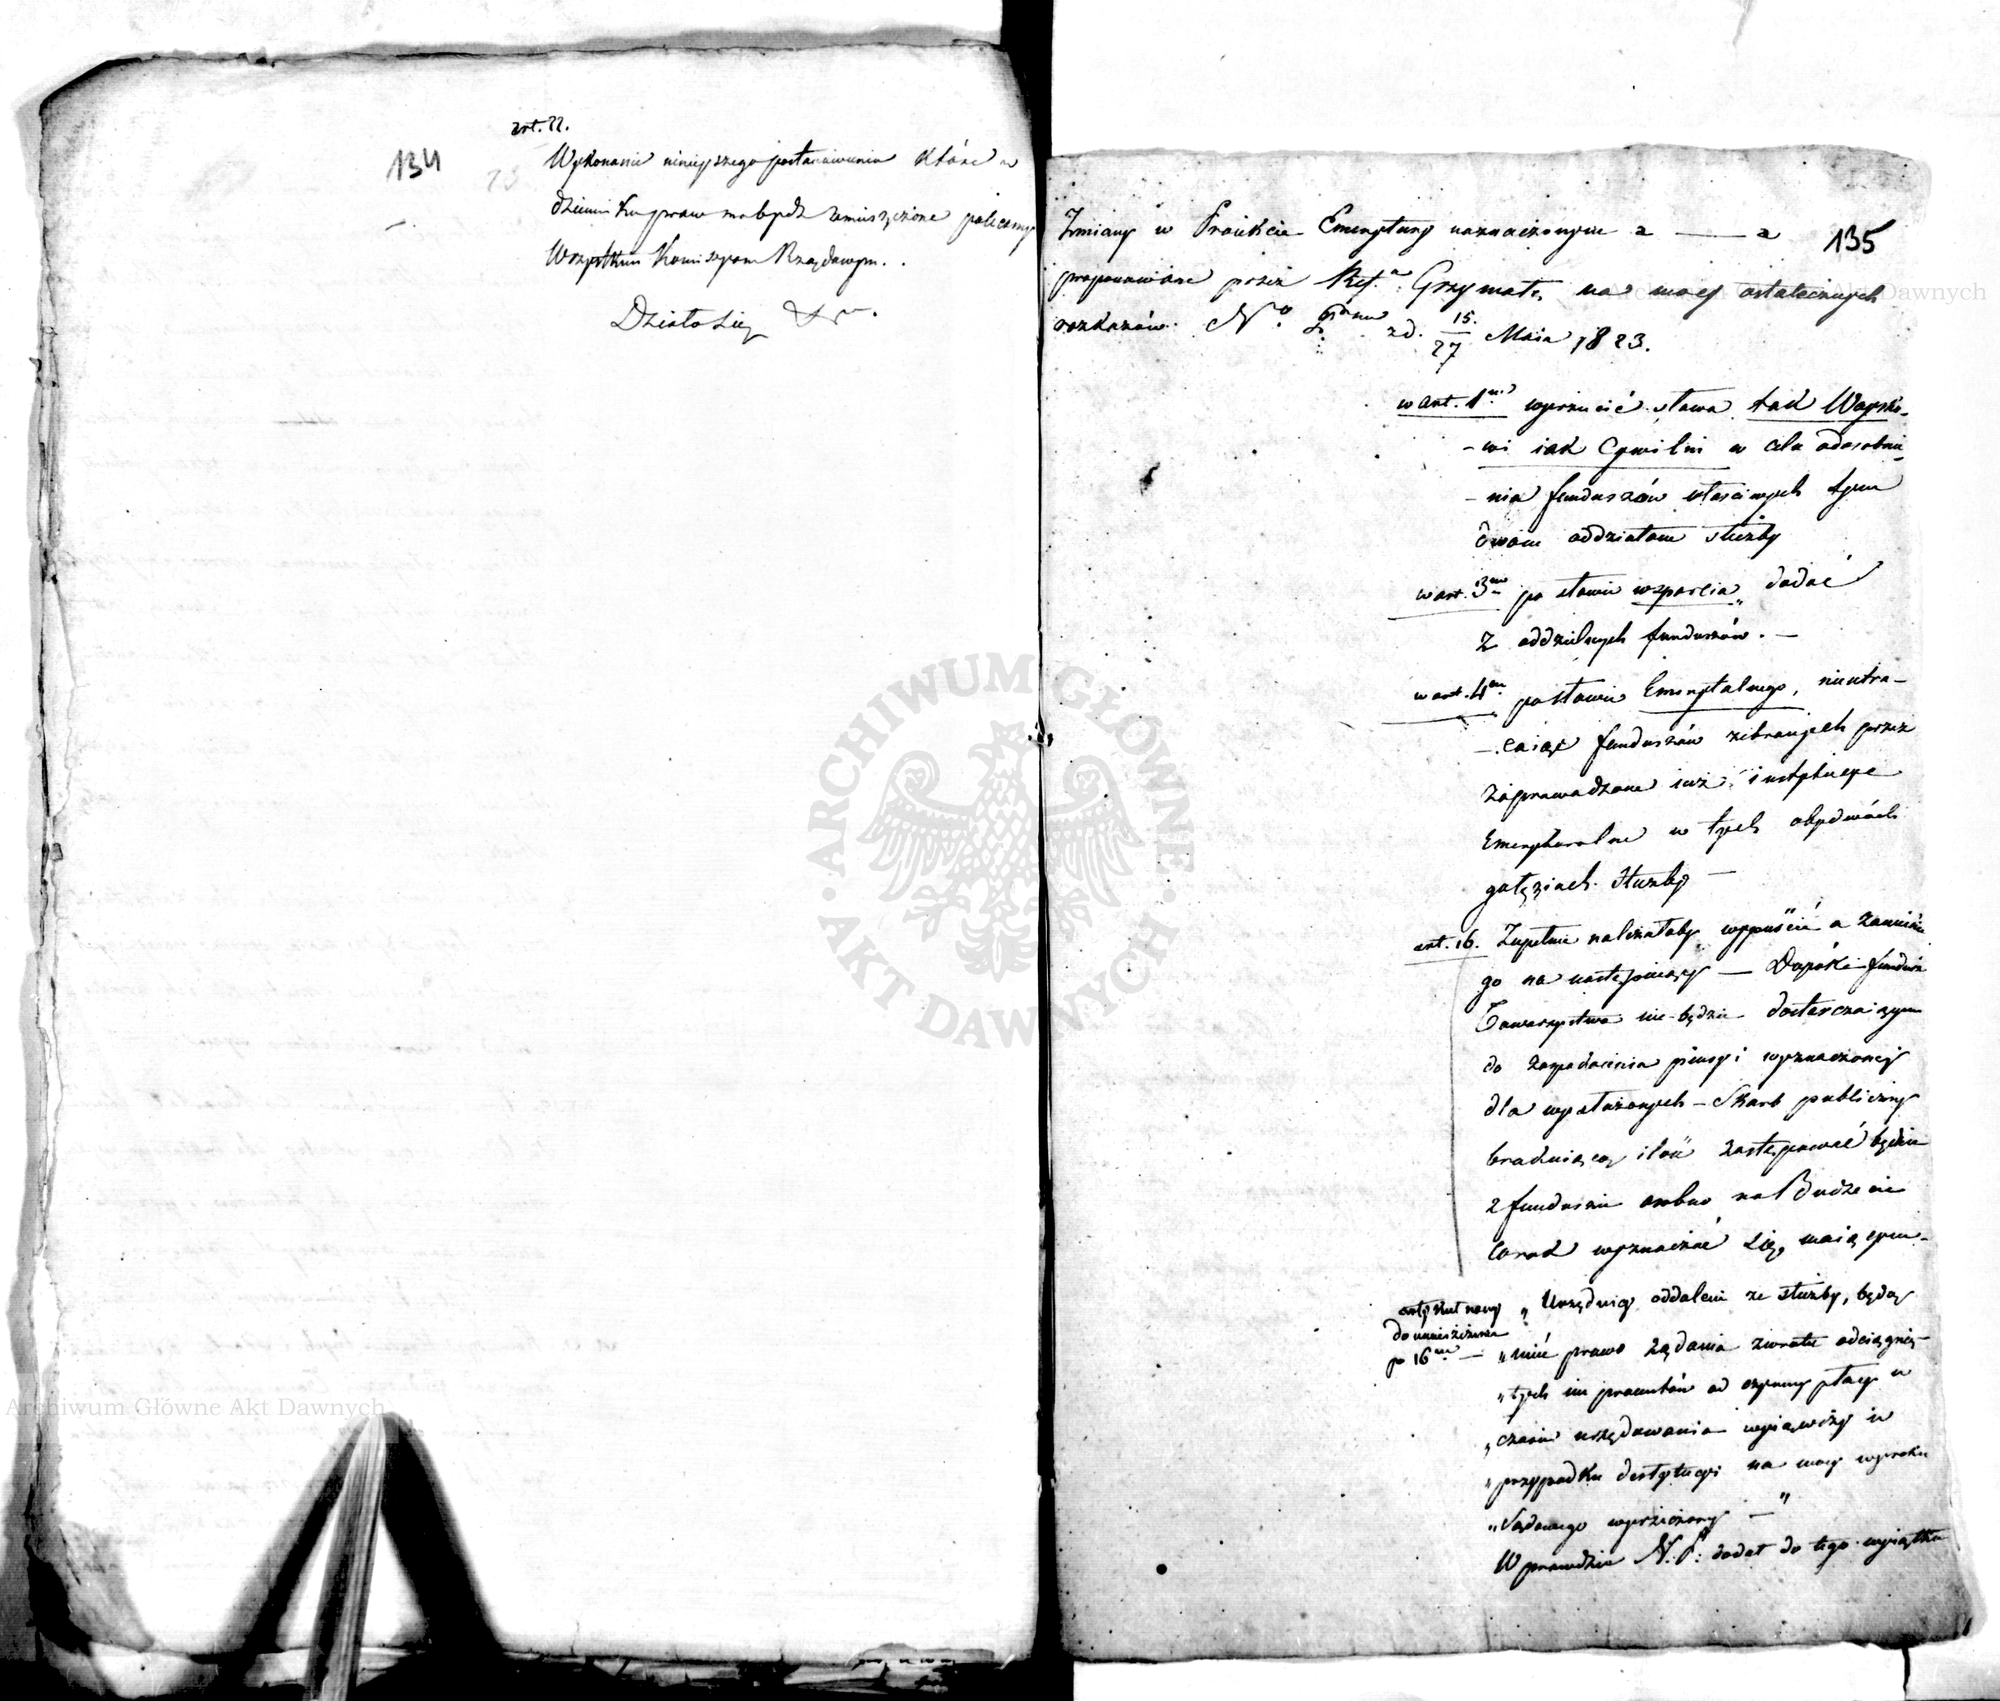 134
art. 22.
Wykonanie ninieyszego postanowienia które w
dzienniku praw ma bydź zamieszczone polecamy
Wszystkim Komissyom Rządowym.
Działo się
135
Zmiany w Proiekcie Emerytury naznaczonym a — a
proponowane przez Ref. Grzymałę, na mocy ostatecznych
rozkazów N.º zd. 15/27 Maia 1823.
w art. 1m wyrzucić słowa tak Woysko-
-wi iak Cywilni w celu odosobnie-
-nia funduszów właściwych tym
dwom oddziałom służby
w art. 3m po słowie wsparcia „ dodać
z oddzielnych funduszów. —
w art. 4m po słowie Emerytalnego, nieutra-
-caiąc funduszów zebranych przez
zaprowadzone iuż instytucye
Emerytalne w tych obydwóch
gałęziach służby —
art. 16. Zupełnie należałoby wypuścić a zamienić
go na następuiący — Dopóki fundusz
Towarzystwa nie będzie dostarczaiącym
do zaspokoienia pensyi wyznaczoney
dla wysłużonych — Skarb publiczny
brakuiącą ilość zastępować będzie
z funduszu osobno na Budżecie
corok wyznaczać się maiącym.
artykuł nowy
do umieszczenia
po 16m —
„ Urzędnicy oddaleni ze służby, będą
„ mieć prawo żądania zwrotu odciągnię-
„ tych im procentów od czynney płacy w
„ czasie urzędowania wyiąwszy w
„ przypadku destytucyi na mocy wyroku
„ Sądowego wyrzeczoney — "
Wprawdzie N. P. dodał do tego wyiątku
Archiwum Główne Akt Dawnych
ARCHIWUM GŁÓWNE AKT DAWNYCH
Archiwum Główne Akt Dawnych